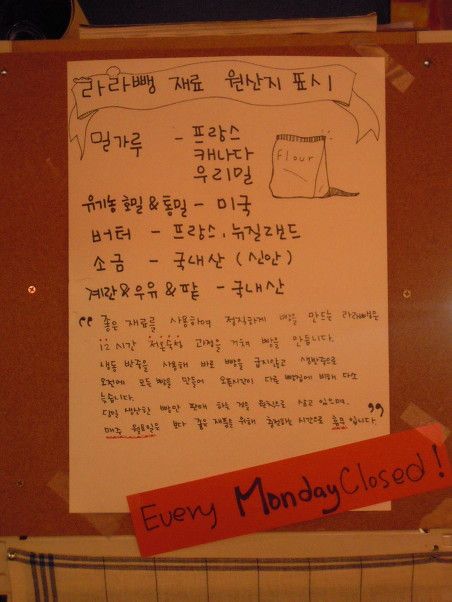 라라빵 재료 원산지 표시
밀가루 - 프랑스
캐나다
우리밀
Flour
유기농 호밀 & 통밀 - 미국
버터 - 프랑스, 뉴질랜드
소금 - 국내산 (신안)
계란 & 우유 & 팥 - 국내산
"좋은 재료를 사용하여 정직하게 빵을 만드는 라라빵은
12시간 저온숙성 과정을 거쳐 빵을 만듭니다.
냉동 반죽을 사용해 바로 빵을 굽지않고 생반죽으로
오전에 모든 빵을 만들어 오픈시간이 다른 빵집에 비해 다소
늦습니다.
당일 생산한 빵만 판매 하는 것을 원칙으로 삼고 있으며,
매주 월요일은 보다 좋은 제품을 위해 충전하는 시간으로 휴무 입니다"
Every Monday Closed!